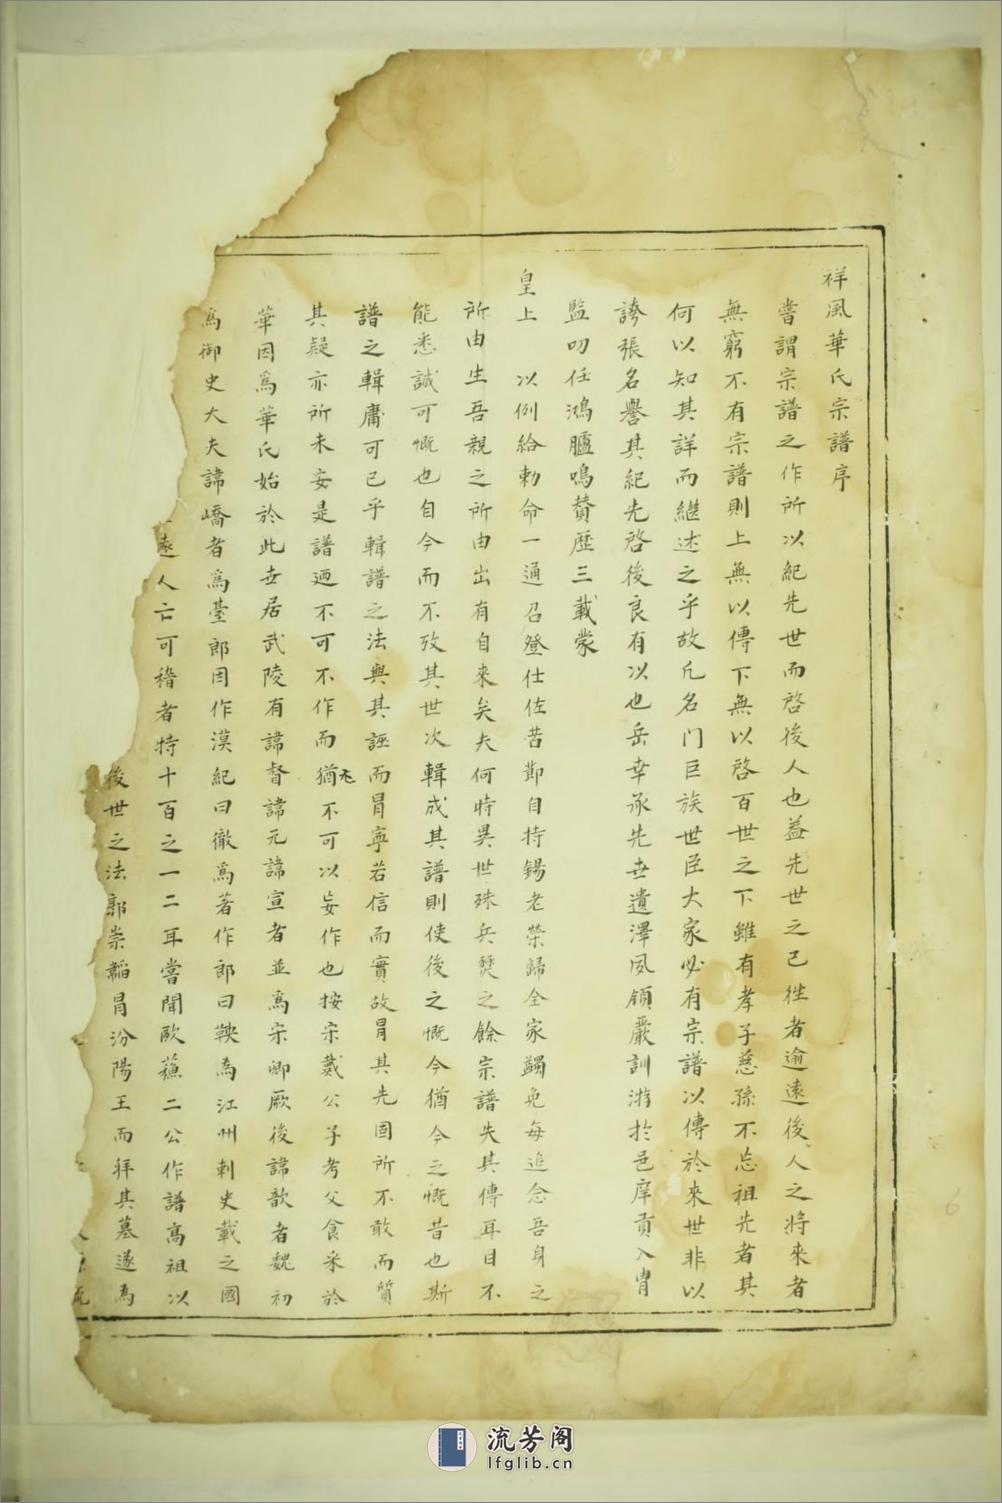 祥風華氏宗譜序
嘗謂宗譜之作所以紀先世而啓後人也盖先世之已徃者逾遠後人之將來者
無窮不有宗譜則上無以傳下無以啓百世之下雖有孝子慈孫不忘祖先者其
何以知其詳而繼述之乎故凡名門巨族世臣大家必有宗譜以傳於來世非以
誇張名譽其紀先啓後良有以也岳幸承先世遺澤夙領嚴訓游於邑庠貢入胄
監叨任鴻臚鳴贊歷三載蒙
皇上 以例給勅命一通召登仕佐苦鄿自持錫老榮歸全家蠲免每追念吾身之
所由生吾親之所由出有自來矣夫何時異世殊兵燹之餘宗譜失其傳耳目不
能悉誠可慨也自今而不攷其世次輯成其譜則使後之慨今猶今之慨昔也斯
譜之輯庸可已乎輯譜之法與其誣而冒寧若信而實故冒其先固所不敢而質
其疑亦所未妄是譜廼不可不作而猶尤不可以妄作也按宋戴公子考父食采於
華因爲華氏始於此世居武陵有諱督諱元諱宣者並爲宋卿厥後諱歆者魏初
爲御史大夫諱嶠者爲臺郎因作漢紀曰徹爲著作郎曰鞅為江州刺史載之國
遠人亡可稽者特十百之一二耳嘗聞歐蘓二公作譜高祖以
後世之法郭崇韜冒汾陽王而拜其墓遂為
流芳阁
lfglib.cn